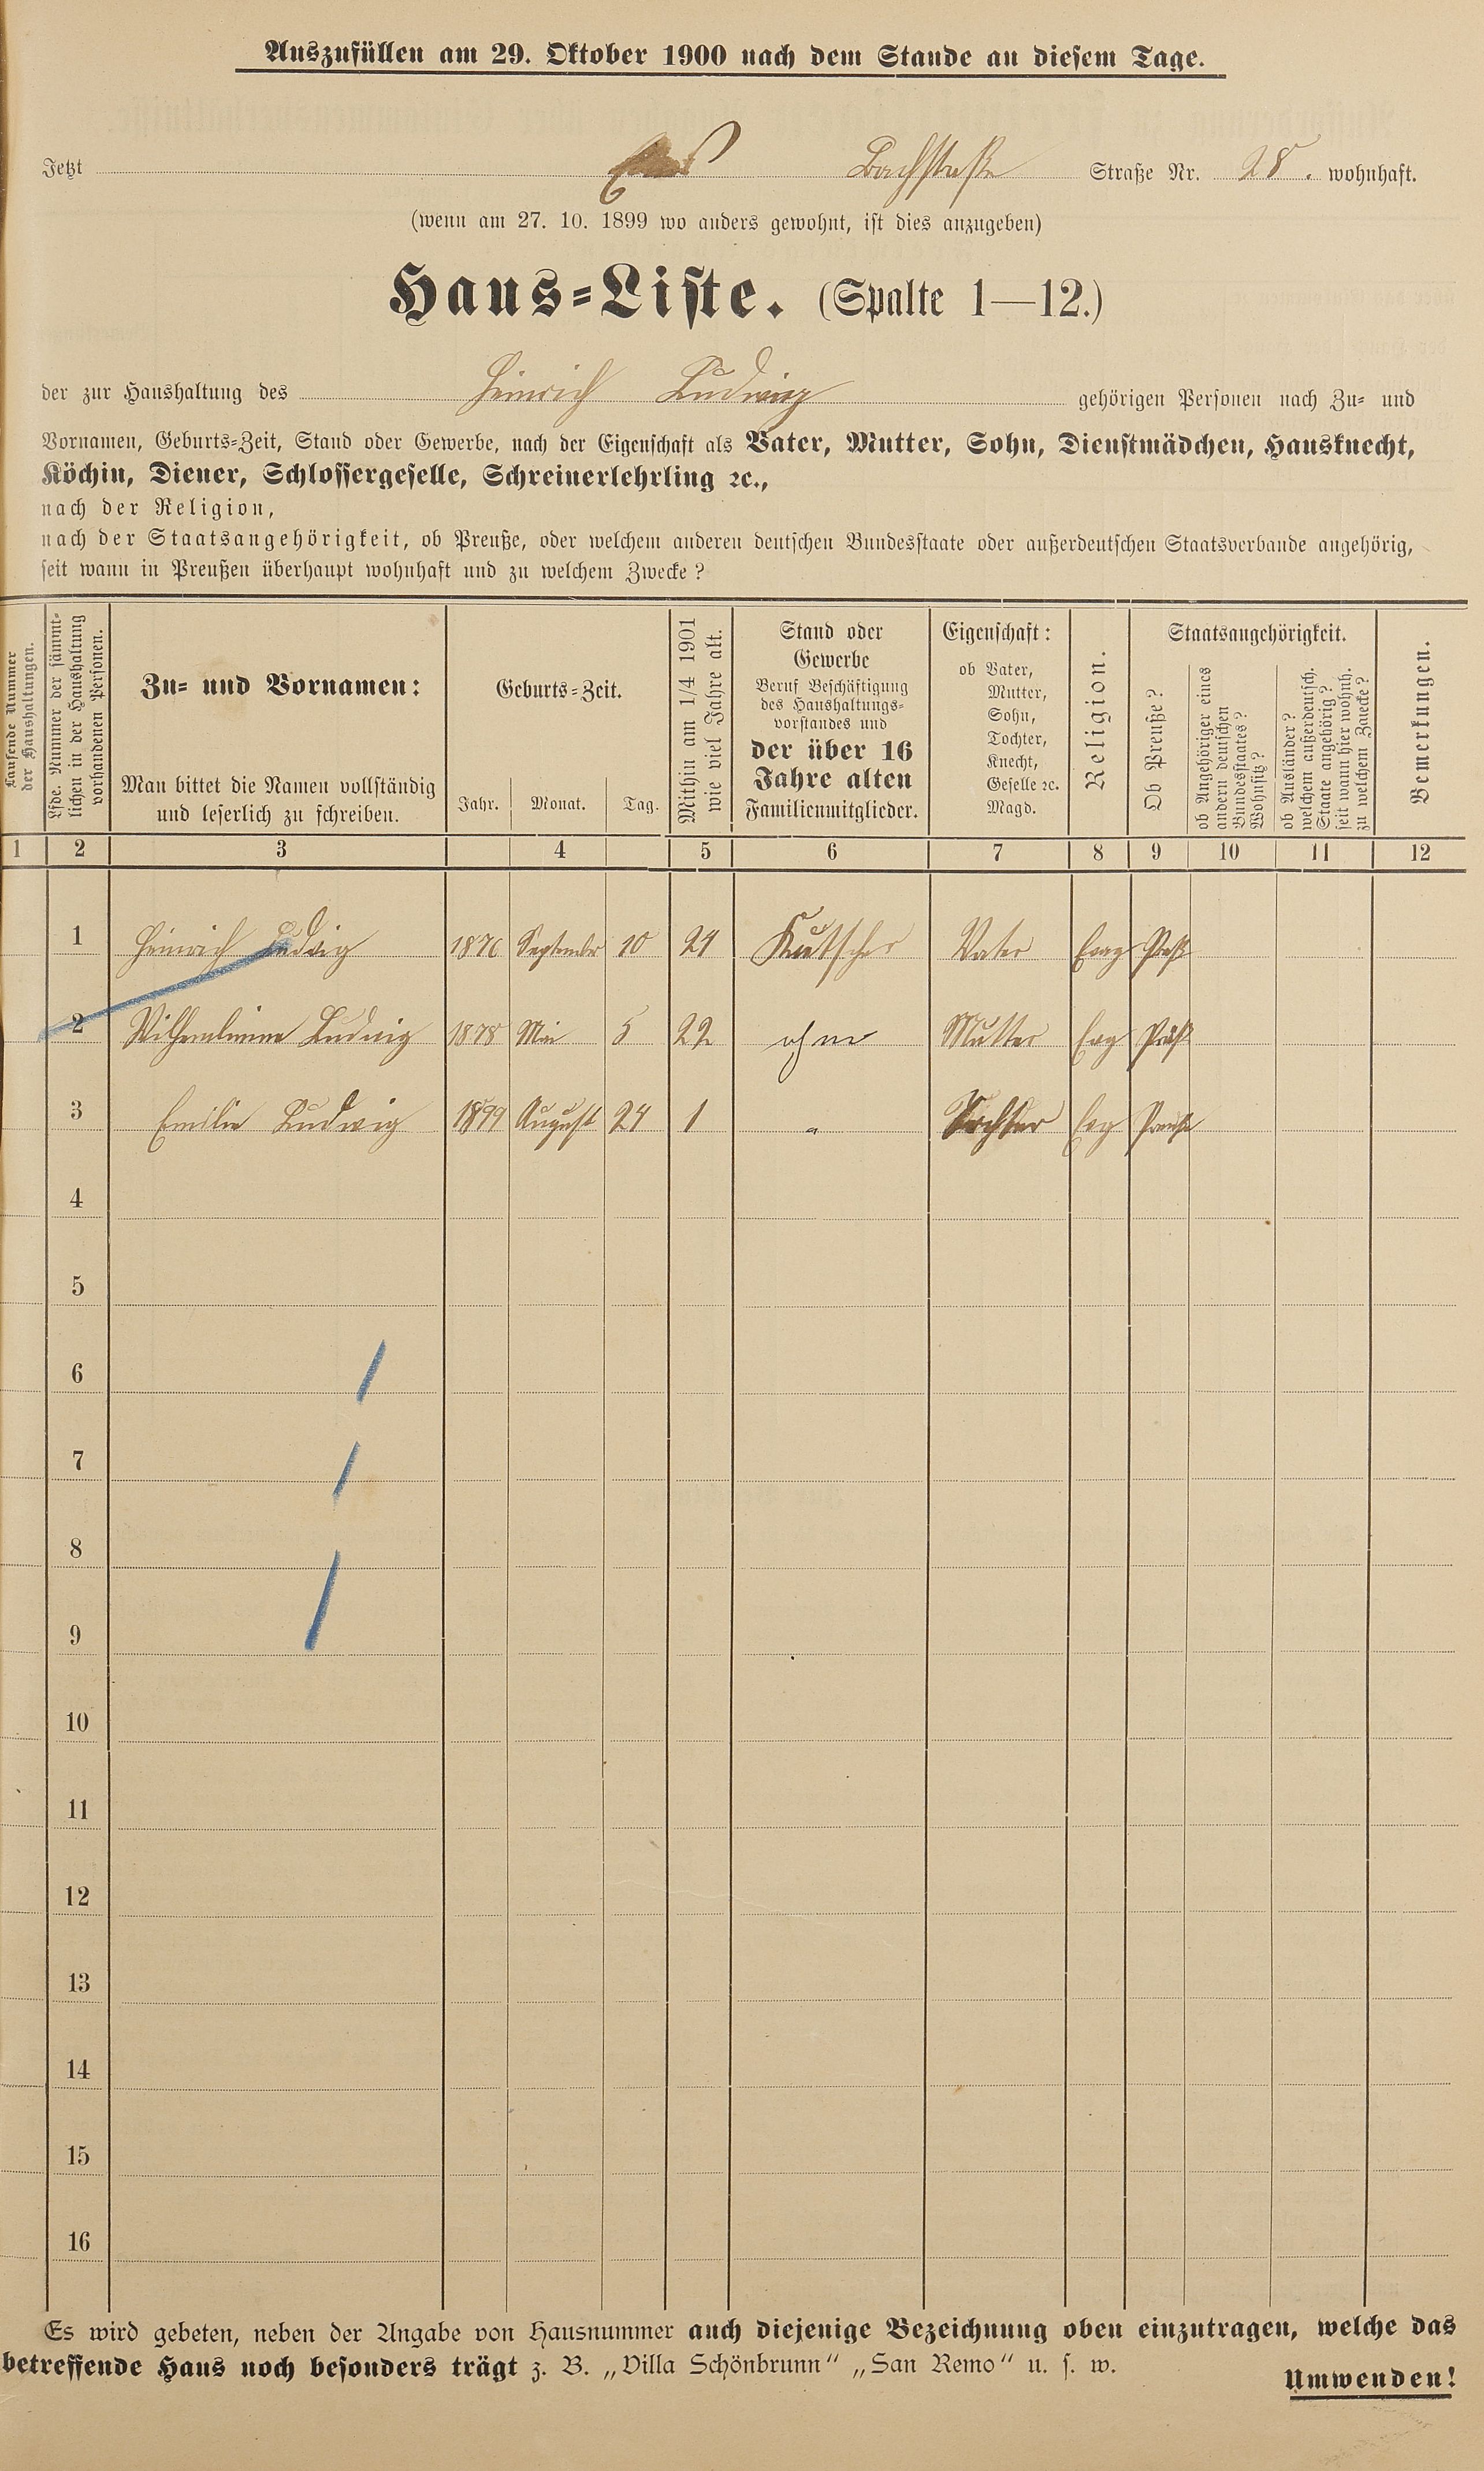 Auszufüllen am 29. Oktober 1900 nach dem Stande an diesem Tage.
Jetzt Bachstraße Straße Nr. 28. wohnhaft.
(wenn am 27. 10. 1899 wo anders gewohnt, ist dies anzugeben)
Haus-Liste. (Spalte 1—12.)
der zur Haushaltung des Heinrich Ludwig gehörigen Personen nach Zu- und
Vornamen, Geburts-Zeit, Stand oder Gewerbe, nach der Eigenschaft als Vater, Mutter, Sohn, Dienstmädchen, Hausknecht,
Köchin, Diener, Schlossergeselle, Schreinerlehrling ꝛc.,
nach der Religion,
nach der Staatsangehörigkeit, ob Preuße, oder welchem anderen deutschen Bundesstaate oder außerdeutschen Staatsverbande angehörig,
seit wann in Preußen überhaupt wohnhaft und zu welchem Zwecke?
Laufende Nummer
der Haushaltungen.
Lfde. Nummer der sämmt-
lichen in der Haushaltung
vorhandenen Personen.
Zu- und Vornamen:
Man bittet die Namen vollständig
und leserlich zu schreiben.
Geburts-Zeit.
Jahr. Monat. Tag.
Mithin am 1/4 1901
wie viel Jahre alt.
Stand oder
Gewerbe
Beruf Beschäftigung
des Haushaltungs-
vorstandes und
der über 16
Jahre alten
Familienmitglieder.
Eigenschaft:
ob Vater,
Mutter,
Sohn,
Tochter,
Knecht,
Geselle ꝛc.
Magd.
Religion.
Staatsangehörigkeit.
Ob Preuße?
ob Angehöriger eines
andern deutschen
Bundesstaates?
Wohnsitz?
ob Ausländer?
welchem außerdeutsch.
Staate angehörig?
seit wann hier wohnh.
zu welchem Zwecke?
Bemerkungen.
1 2 3 4 5 6 7 8 9 10 11 12
1 Heinrich Ludwig 1876 September 10 24 Kutscher Vater Evag Preß
2 Wilhemlinne Ludwig 1878 Mai 5 22 ohne Mutter Evg Präß
3 Emilie Ludwig 1899 August 24 1 " Tochter Evg Preuße
4
5
6
7
8
9
10
11
12
13
14
15
16
Es wird gebeten, neben der Angabe von Hausnummer auch diejenige Bezeichnung oben einzutragen, welche das
betreffende Haus noch besonders trägt z. B. „Villa Schönbrunn“ „San Remo“ u. s. w.
Umwenden!